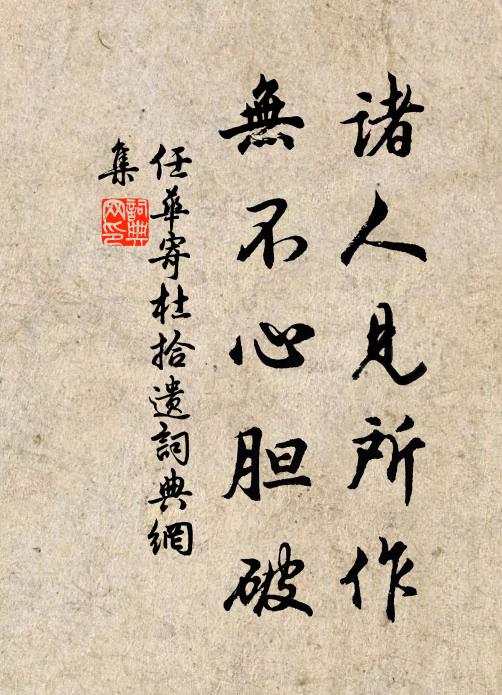 諸人見所作
無不心胆破
任華寄杜拾遺詞典網
集
詞典
网印